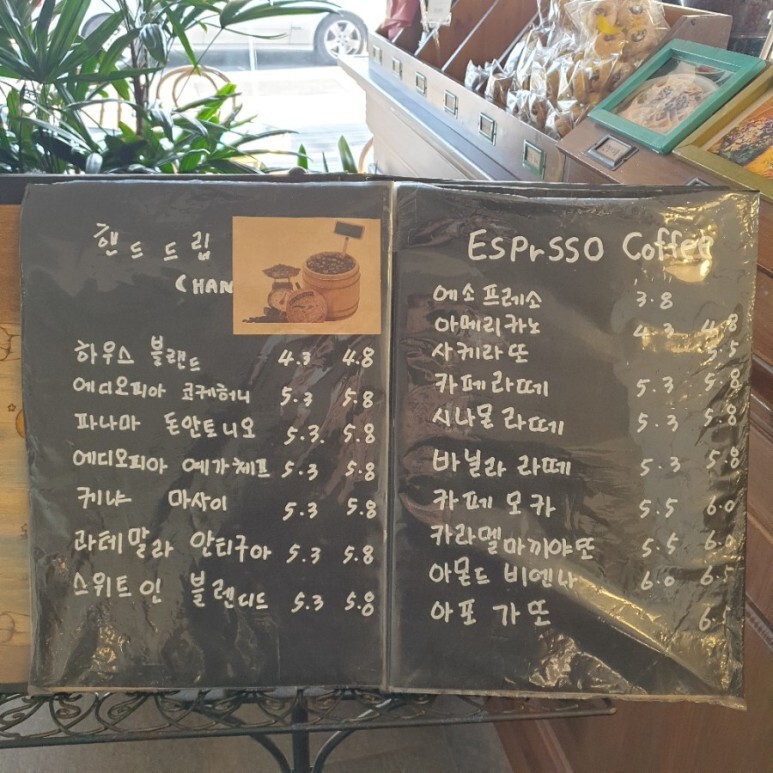 핸드드립
CHAN
하우스 블랜드 4.3 4.8
에디오피아 코케허니 5.3 5.8
파나마 돈안토니오 5.3 5.8
에디오피아 예가체프 5.3 5.8
케냐 마사이 5.3 5.8
과테말라 안티구아 5.3 5.8
스위트인 블렌디드 5.3 5.8
ESPrSSO Coffee
에소프레소 3.8
아메리카노 4.3 4.8
사케라또 5.5
카페라떼 5.3 5.8
시나몬라떼 5.3 5.8
바닐라 라떼 5.3 5.8
카페모카 5.5 6.0
카라멜마끼야또 5.5 6.0
아몬드 비엔나 6.0 6.5
아포가또